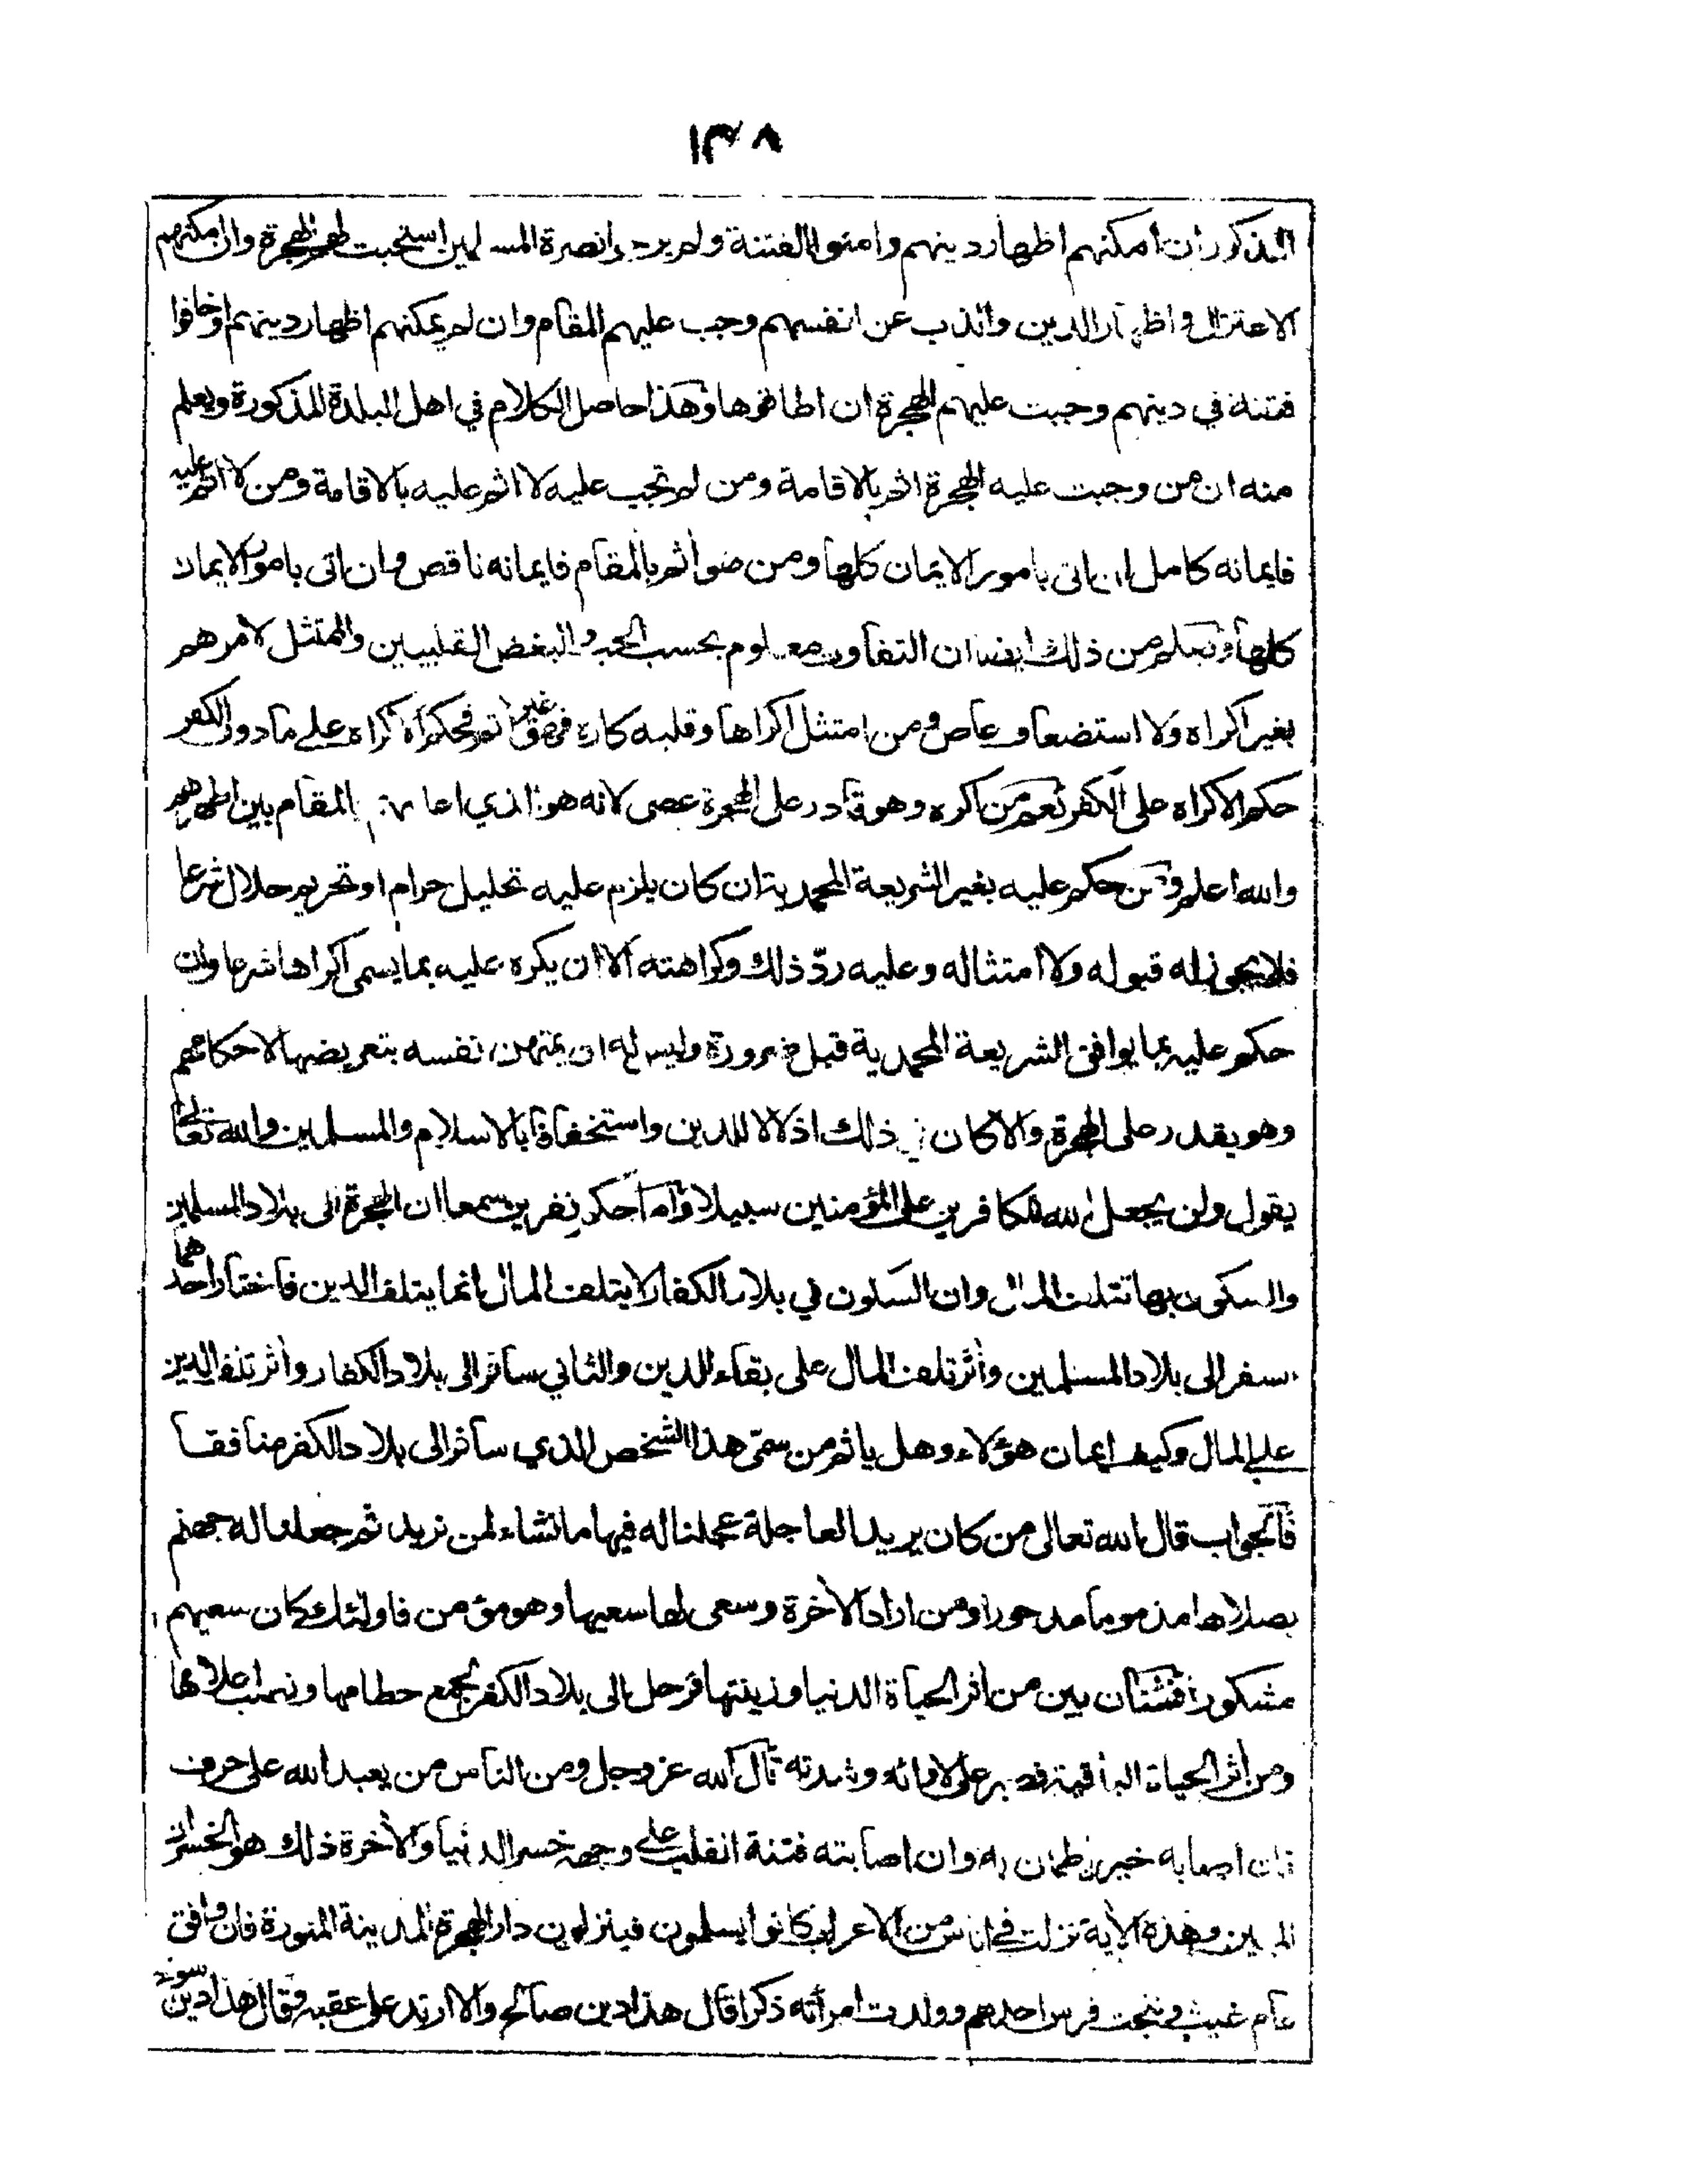 ١٣٨
المذكور ان امكنهم اظهار دينهم وامنوا الفتنة ولم يرجوا نصرة المسلمين استحبت لهم الهجرة وان امكنهم
الاعتزال واظهار الدين والذب عن انفسهم وجب عليهم المقام وان لم يمكنهم اظهار دينهم او خافوا
فتنة في دينهم وجبت عليهم الهجرة ان اطاقوها وهذا حاصل الكلام في اهل البلدة المذكورة ويعلم
منه ان من وجبت عليه الهجرة اثم بالاقامة ومن لم تجب عليه لا اثم عليه بالاقامة ومن لا اثم عليه
فايمانه كامل ان اتى بامور الايمان كلها ومن هو اثم بالمقام فايمانه ناقص وان اتى بامور الايمان
كلها ويعلم من ذلك ايضا ان التفاوت معلوم بحسب الحب والبغض القلبيين والممتثل لامرهم
بغير اكراه ولا استضعاف عاص ومن امتثل اكراها وقلبه كاره فهو غير اثم فحكم الاكراه على ما دون الكفر
حكم الاكراه على الكفر نعم من اكره وهو قادر على الهجرة عصى لانه هو الذي اعان بالمقام بين اظهرهم
والله اعلم ومن حكم عليه بغير الشريعة المحمدية ان كان يلزم عليه تحليل حرام او تحريم حلال شرعا
فلا يجوز له قبوله ولا امتثاله وعليه ردّ ذلك وكراهته الا ان يكره عليه بما يسمى اكراها شرعا وان
حكم عليه بما يوافق الشريعة المحمدية قبل ضرورة وليس له ان يمتهن نفسه بتعريضها لاحكامهم
وهو يقدر على الهجرة والا كان ذلك اذلالا للدين واستخفافا بالاسلام والمسلمين والله تعالى
يقول ولن يجعل الله للكافرين على المؤمنين سبيلا واما حكم نفرين سمعا ان الهجرة الى بلاد المسلمين
والسكون بها تتلف المال وان السكون في بلاد الكفار لا يتلف المال انما يتلف الدين فاختار احدهما
السفر الى بلاد المسلمين وأثر تلف المال على بقاء الدين والثاني سافر الى بلاد الكفار وأثر تلف الدين
على المال وكيف ايمان هؤلاء وهل ياثم من سمّى هذا الشخص الذي سافر الى بلاد الكفر منافقا
فالجواب قال الله تعالى من كان يريد العاجلة عجلنا له فيها ما نشاء لمن نريد ثم جعلنا له جهنم
يصلاها مذموما مدحورا ومن اراد الاخرة وسعى لها سعيها وهو مؤمن فاولئك كان سعيهم
مشكورا فشتان بين من اثر الحياة الدنيا وزينتها فرحل الى بلاد الكفر لجمع حطامها
ومن أثر الحياة الباقية فصبر على وشدته قال الله عز وجل ومن الناس من يعبد الله على حرف
فان اصابه خير اطمان به وان اصابته فتنة انقلب على وجهه خسر الدنيا والاخرة ذلك هو الخسران
المبين وهذه الاية نزلت في اناس من الاعراب كانوا يسلمون فينزلون دار الهجرة المدينة المنورة فان وافق
عام غيث ونتجت فرس احدهم وولدت امرأته ذكرا قال هذا دين صالح والا ارتد على عقبه وقال هذا دين سوء